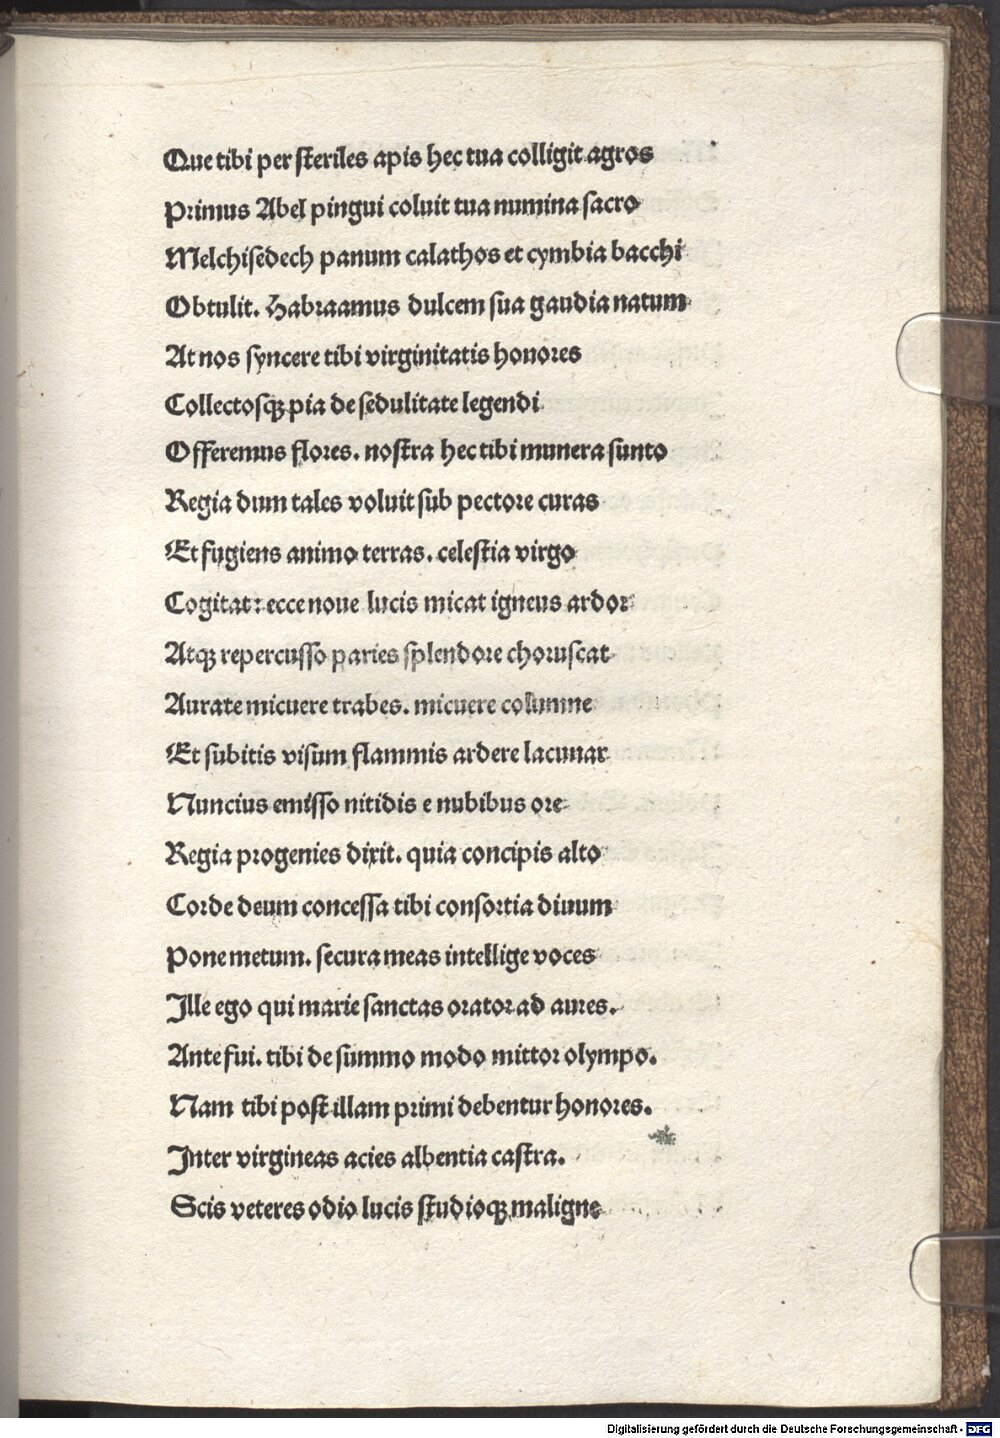 Que tibi per steriles apis hec tua colligit agros
Primus Abel pingui coluit tua numina sacro
Melchisedech panum calathos et cymbia bacchi
Obtulit. Habraamus dulcem sua gaudia natum
At nos syncere tibi virginitatis honores
Collectosqꝫ pia de sedulitate legendi
Offeremus flores. nostra hec tibi munera sunto
Regia dum tales voluit sub pectore curas
Et fugiens animo terras. celestia virgo
Cogitat: ecce noue lucis micat igneus ardor
Atqꝫ repercusso paries splendore choruscat
Aurate micuere trabes. micuere columne
Et subitis visum flammis ardere lacunar
Nuncius emisso nitidis e nubibus ore
Regia progenies dixit. quia concipis alto
Corde deum concessa tibi consortia diuum
Pone metum. secura meas intellige voces
Ille ego qui marie sanctas orator ad aures.
Ante fui. tibi de summo modo mittor olympo.
Nam tibi post illam primi debentur honores.
Inter virgineas acies albentia castra.
Scis veteres odio lucis studioqꝫ maligne
Digitalisierung gefördert durch die Deutsche Forschungsgemeinschaft - DFG